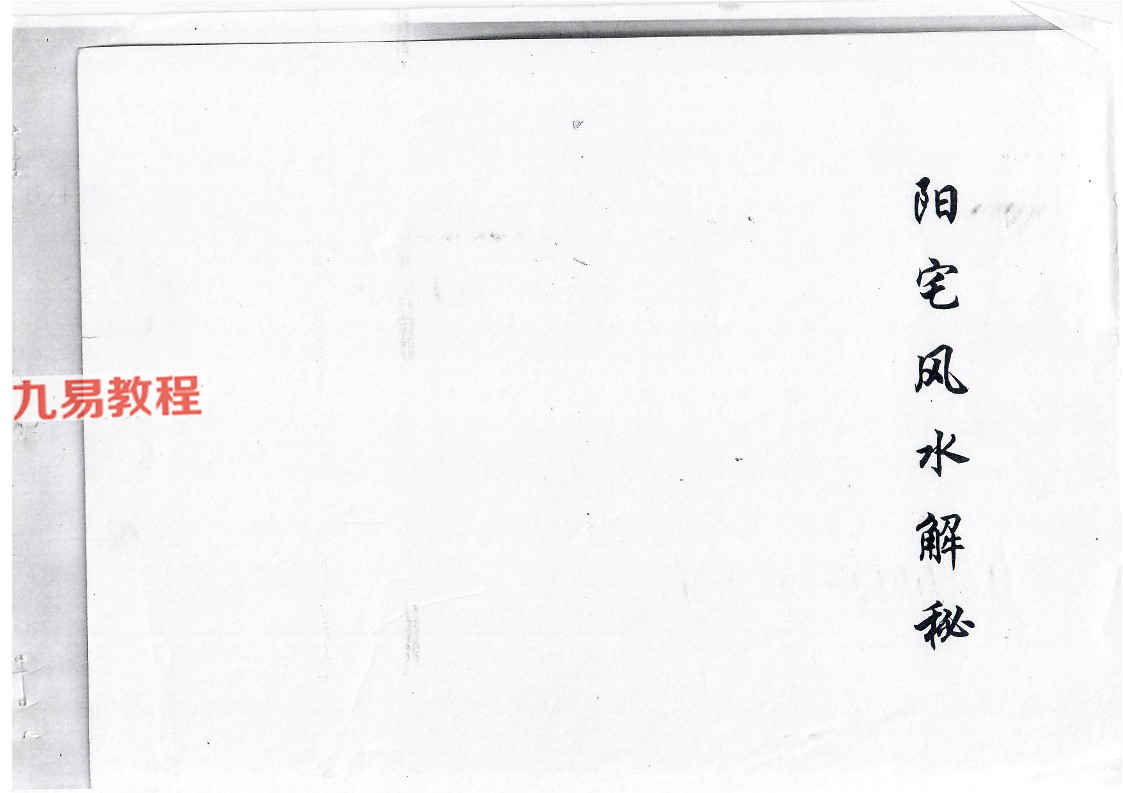 阳宅风水解秘
九易教程